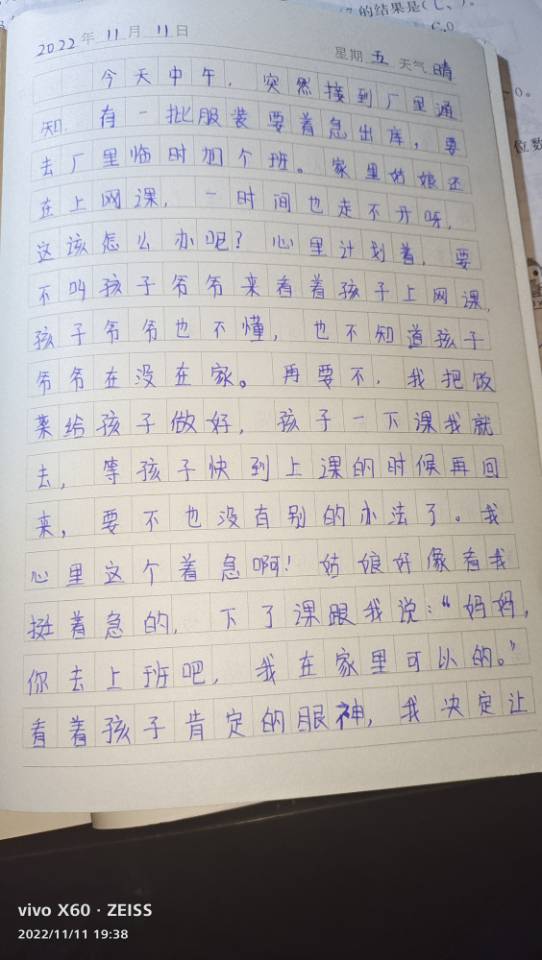 的结果是(
C.0
2022年11月11日
星期五 天气晴
今天中午，突然接到厂里通
知，有一批服装要着急出库，要
去厂里临时加个班。家里姑娘还
在上网课，一时间也走不开呀，
这该怎么办呢？心里计划着，要
不叫孩子爷爷来看着孩子上网课，
孩子爷爷也不懂，也不知道孩子
爷爷在没在家。再要不，我把饭
菜给孩子做好，孩子一下课我就
去，等孩子快到上课的时候再回
来，要不也没有别的办法了。我
心里这个着急啊！姑娘好像看我
挺着急的，下了课跟我说：“妈妈，
你去上班吧，我在家里可以的。”
看着孩子肯定的眼神，我决定让
位数
vivo X60 · ZEISS
2022/11/11 19:38